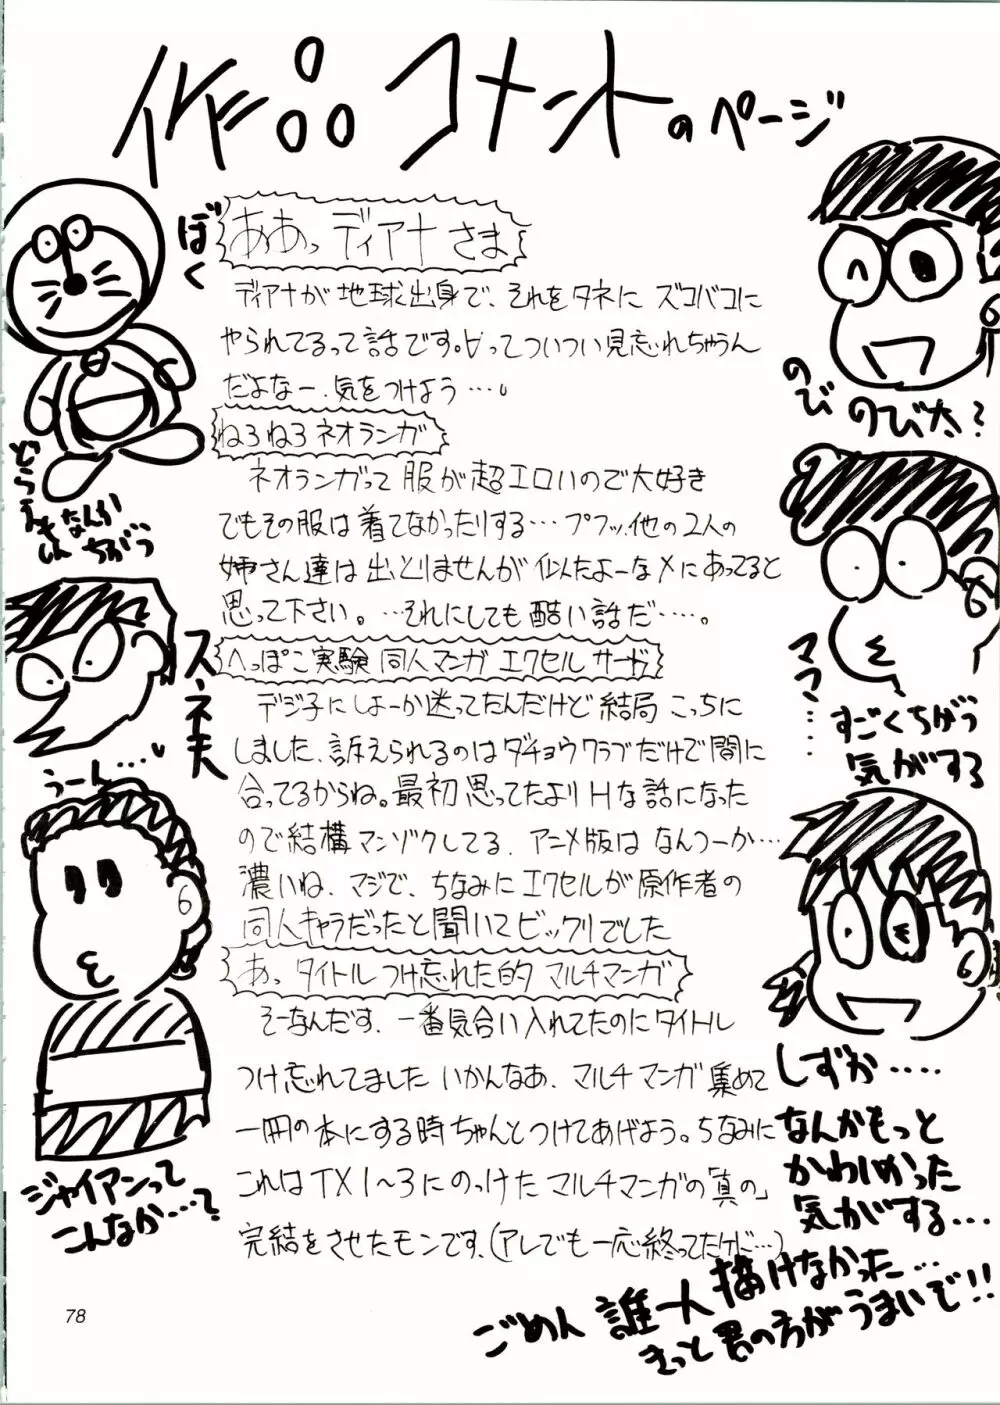 作品コメントのページ
ああっディアナさま
ディアナが地球出身で、それをタネにズコバコに
やられてるって話です。∀ってついつい見忘れちゃうん
だよなー、気をつけよう…。
ねろねろネオランガ
ネオランガって服が超エロいので大好き
でもその服は着てなかったりする…プフッ、他の2人の
姉さん達は出とりませんが似たよーなメにあってると
思って下さい。…それにしても酷い話だ……。
へっぽこ実験同人マンガ エクセルサーガ
デジ子にしよーか迷ってたんだけど結局こっちに
しました、訴えられるのはダチョウクラブだけで間に
合ってるからね。最初思ってたよりHな話になった
ので結構マンゾクしてる、アニメ版はなんつーか…
濃いね、マジで、ちなみにエクセルが原作者の
同人キャラだったと聞いてビックリでした
あっ タイトルつけ忘れた的マルチマンガ
そーなんだす、一番気合い入れてたのにタイトル
つけ忘れてました いかんなあ、マルチマンガ集めて
一冊の本にする時ちゃんとつけてあげよう。ちなみに
これはTX1～3にのっけたマルチマンガの「真の」
完結をさせたモンです、(アレでも一応終ってたケド…)
ぼく
どらえもん
なんか
ちがう
スネ夫
うーん…
ジャイアンって
こんなか…？
のび
のび太？
ママ…
すごくちがう
気がする
しずか……
なんかもっと
かわいかった
気がする…
ごめん 誰一人描けなかった…
きっと君の方がうまいで!!
78